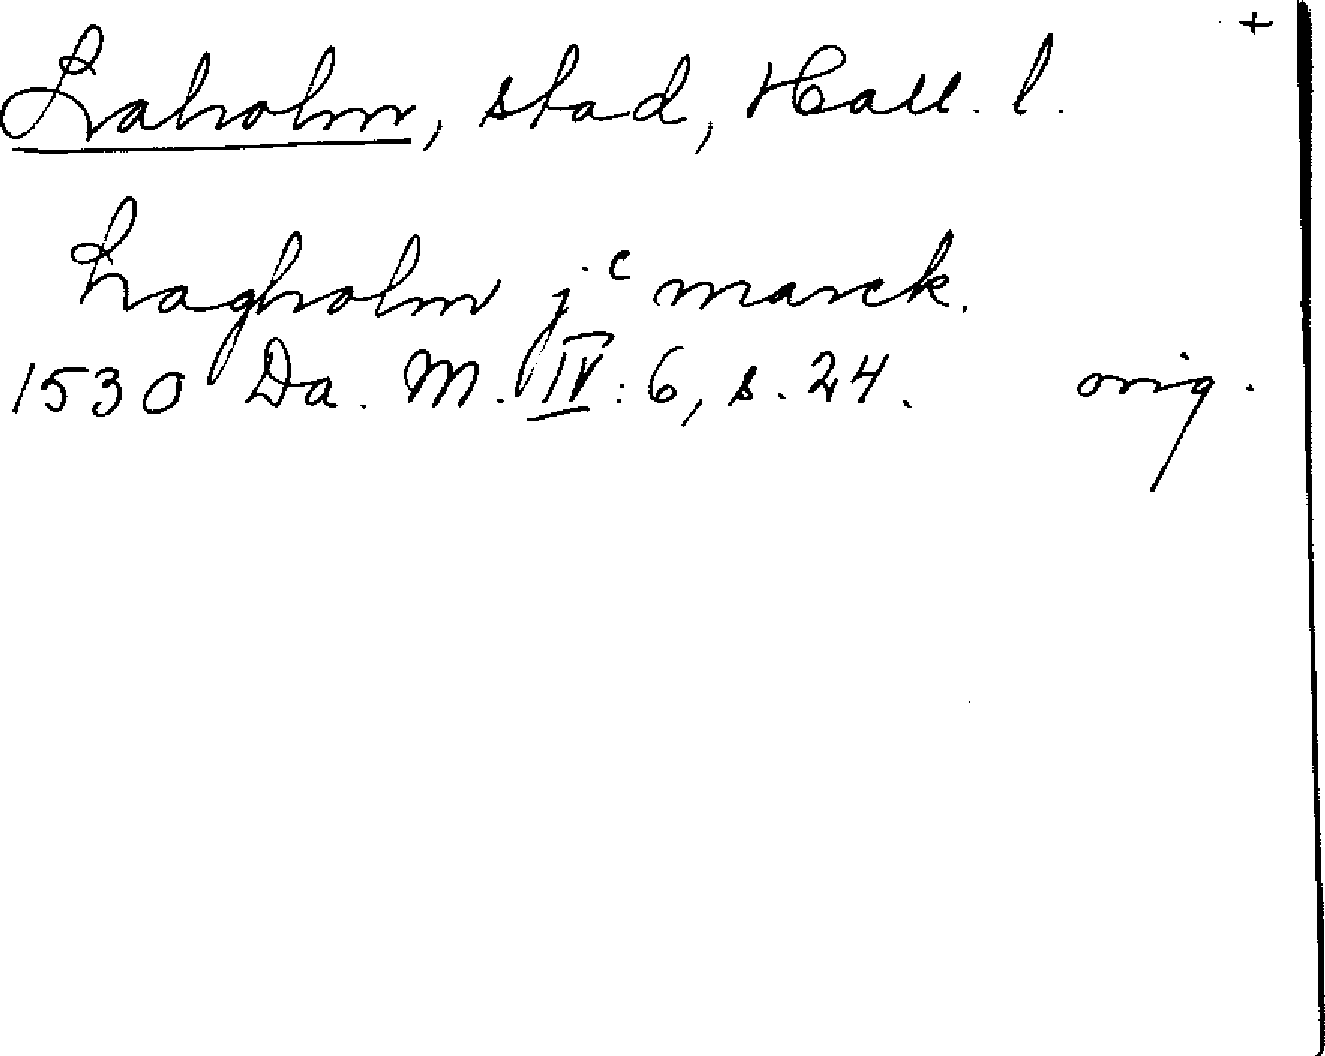 +
Laholm, stad, Hall. l.
Lagholm jc marck.
1530 Da. M. IV: 6, s. 24. orig.